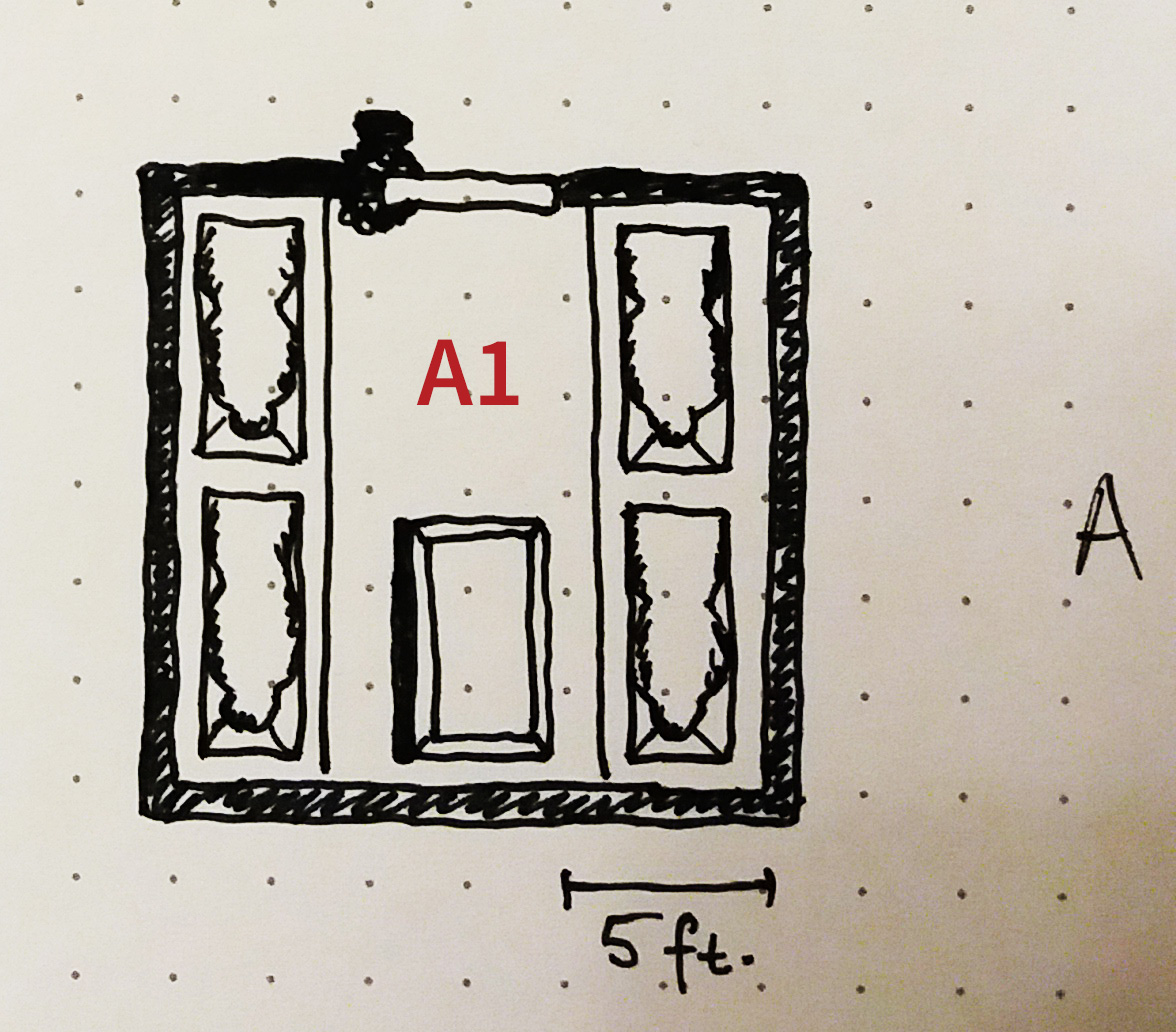 A1
A
5 ft.